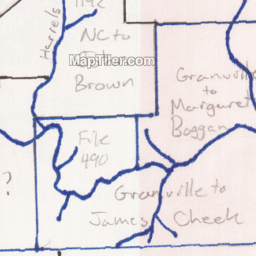 1192
Harrels
NC to
Brown
MapTiler.com
Granville
to
Margaret
Boggan
File
490
?
Granville to
James Cheek